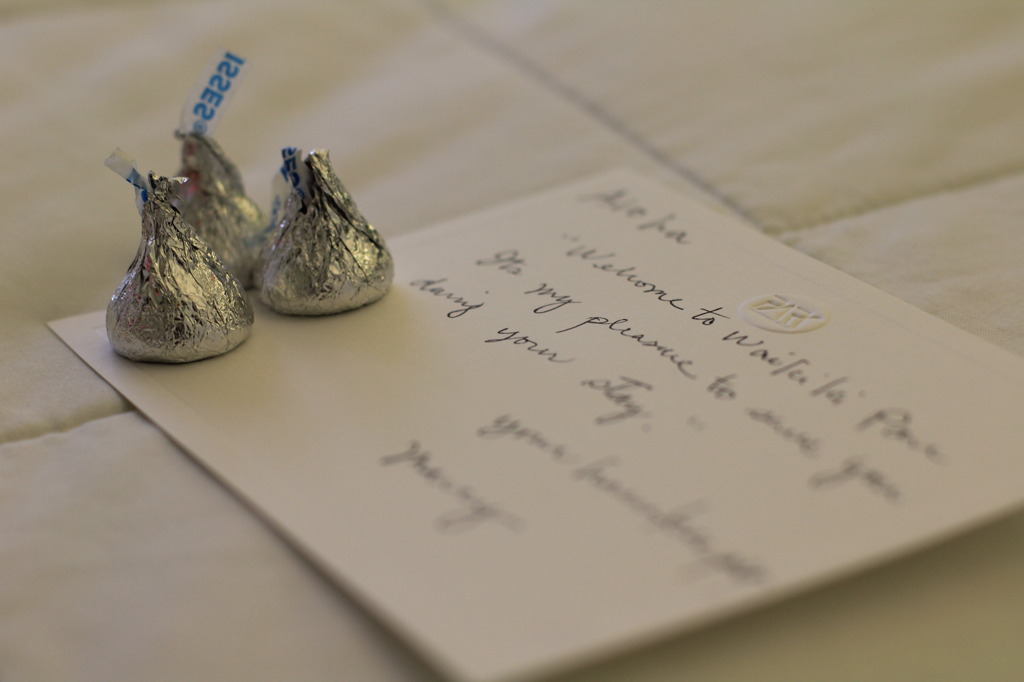 ISSES®
Aloha
PARC
"Welcome to Waikiki Parc
Its my pleasure to serve you
during your stay."
your housekeeper